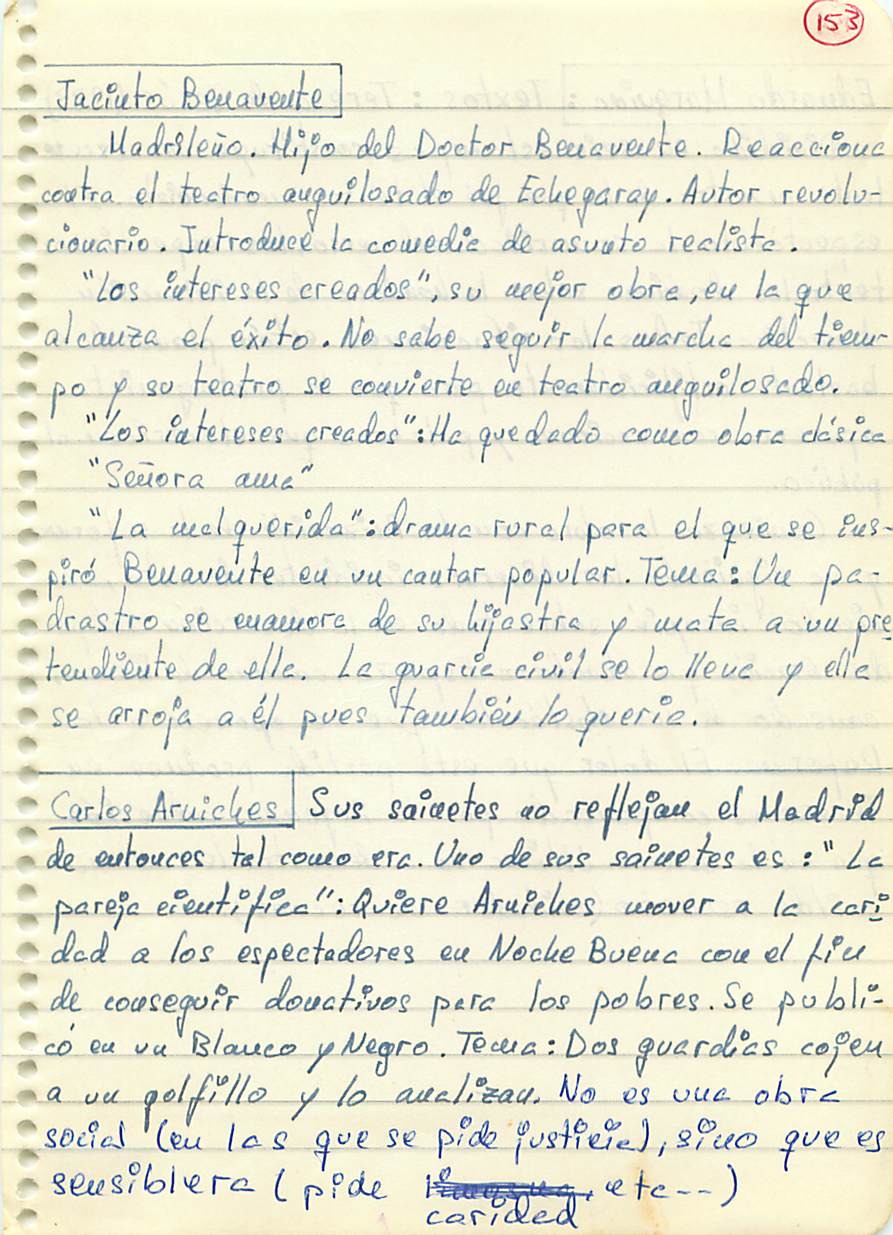 153
Jacinto Benavente
Madrileño. Hijo del Doctor Benavente. Reacciona
contra el teatro anguilosado de Echegaray. Autor revolu-
cionario. Introduce la comedia de asunto realista.
"Los intereses creados", su mejor obra, en la que
alcanza el éxito. No sabe seguir la marcha del tiem-
po y su teatro se convierte en teatro anguilosado.
"Los intereses creados": Ha quedado como obra clásica
"Señora ama"
"La malquerida": drama rural para el que se ins-
piró Benavente en un cantar popular. Tema: Un pa-
drastro se enamora de su hijastra y mata a un pre
tendiente de ella. La guarcia civil se lo lleva y ella
se arroja a él pues también lo queria.
Carlos Arniches Sus sainetes no reflejan el Madrid
de entonces tal como era. Uno de sus sainetes es : "La
pareja cientifica": Quiere Arniches mover a la cari
dad a los espectadores en Noche Buena con el fin
de conseguir donativos para los pobres. Se publi-
có en un Blanco y Negro. Tema: Dos guardias cojen
a un golfillo y lo analizan. No es una obra
social (en las que se pide justicia), sino que es
sensiblera (pide limosna, etc--)
caridad